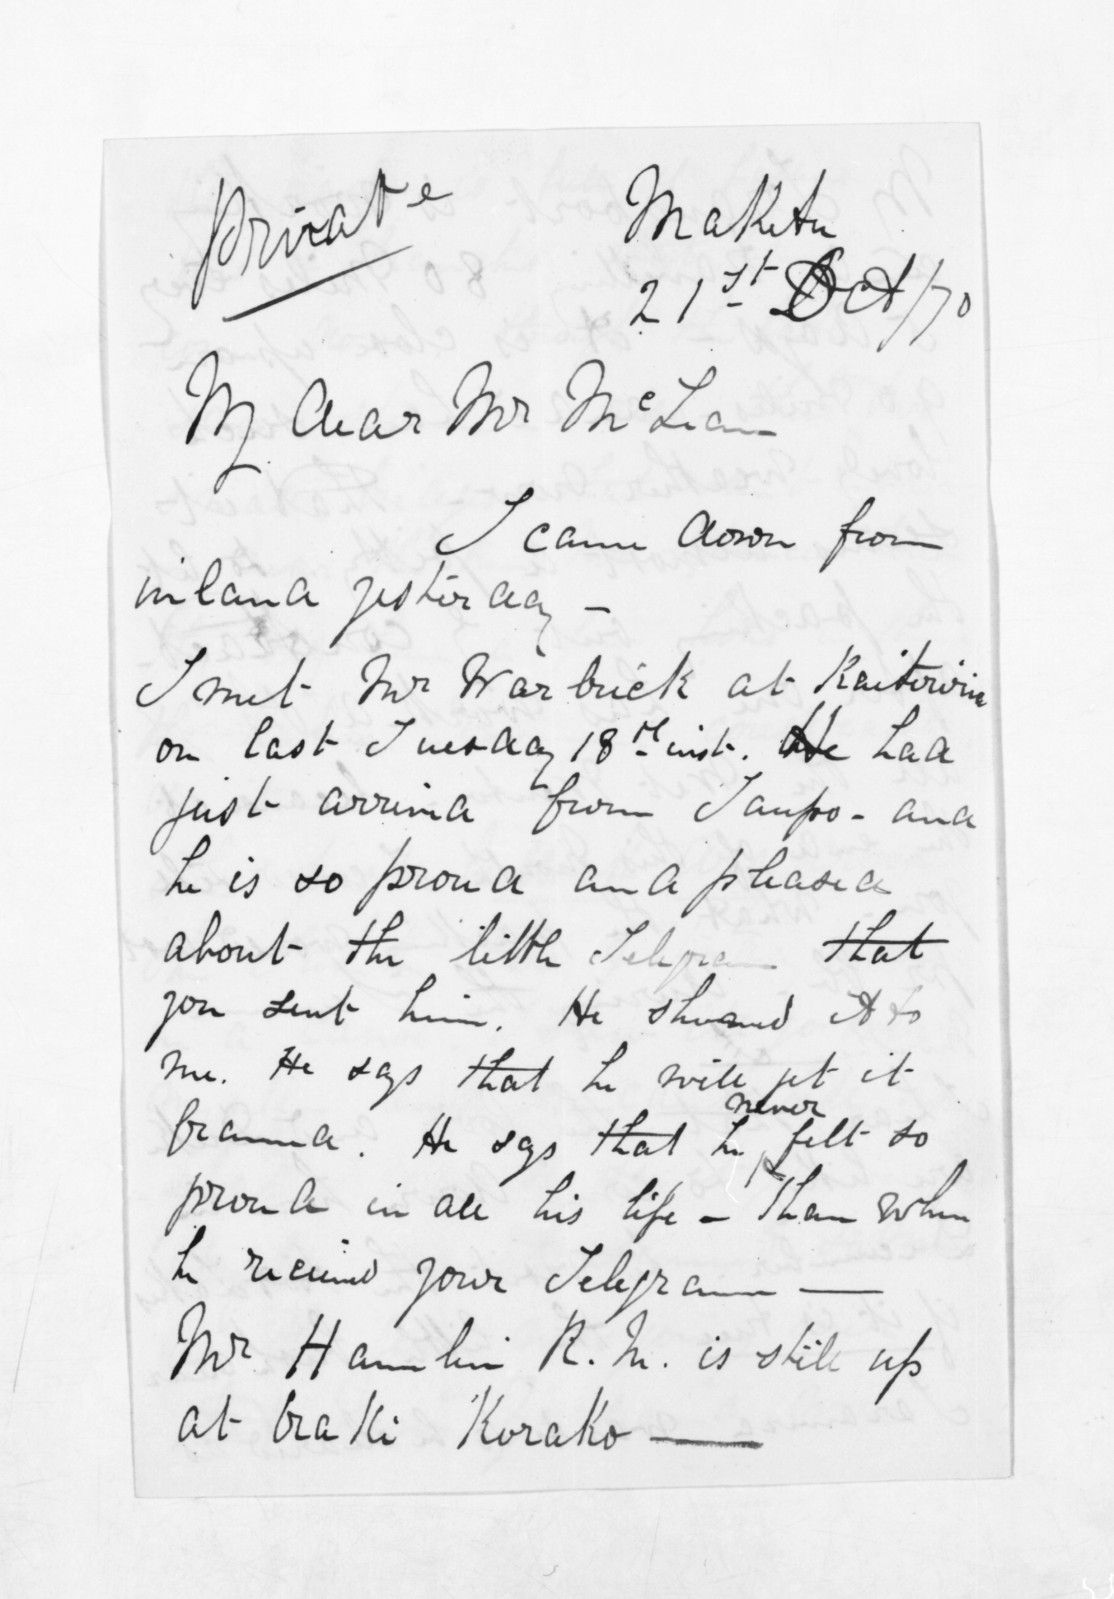 Private
Maketu
21st Oct/70
My dear Mr McLean
I came down from
inland yesterday —
I met Mr Warbrick at Kaiteriria
on last Tuesday 18th inst. He had
just arrived from Taupo - and
he is so proud and pleased
about the little Telegram that
you sent him. He showed it to
me. He says that he will get it
framed. He says that he never felt so
proud in all his life – than when
he received your Telegram —
Mr Hamlin R.M. is still up
at Oraki Korako —